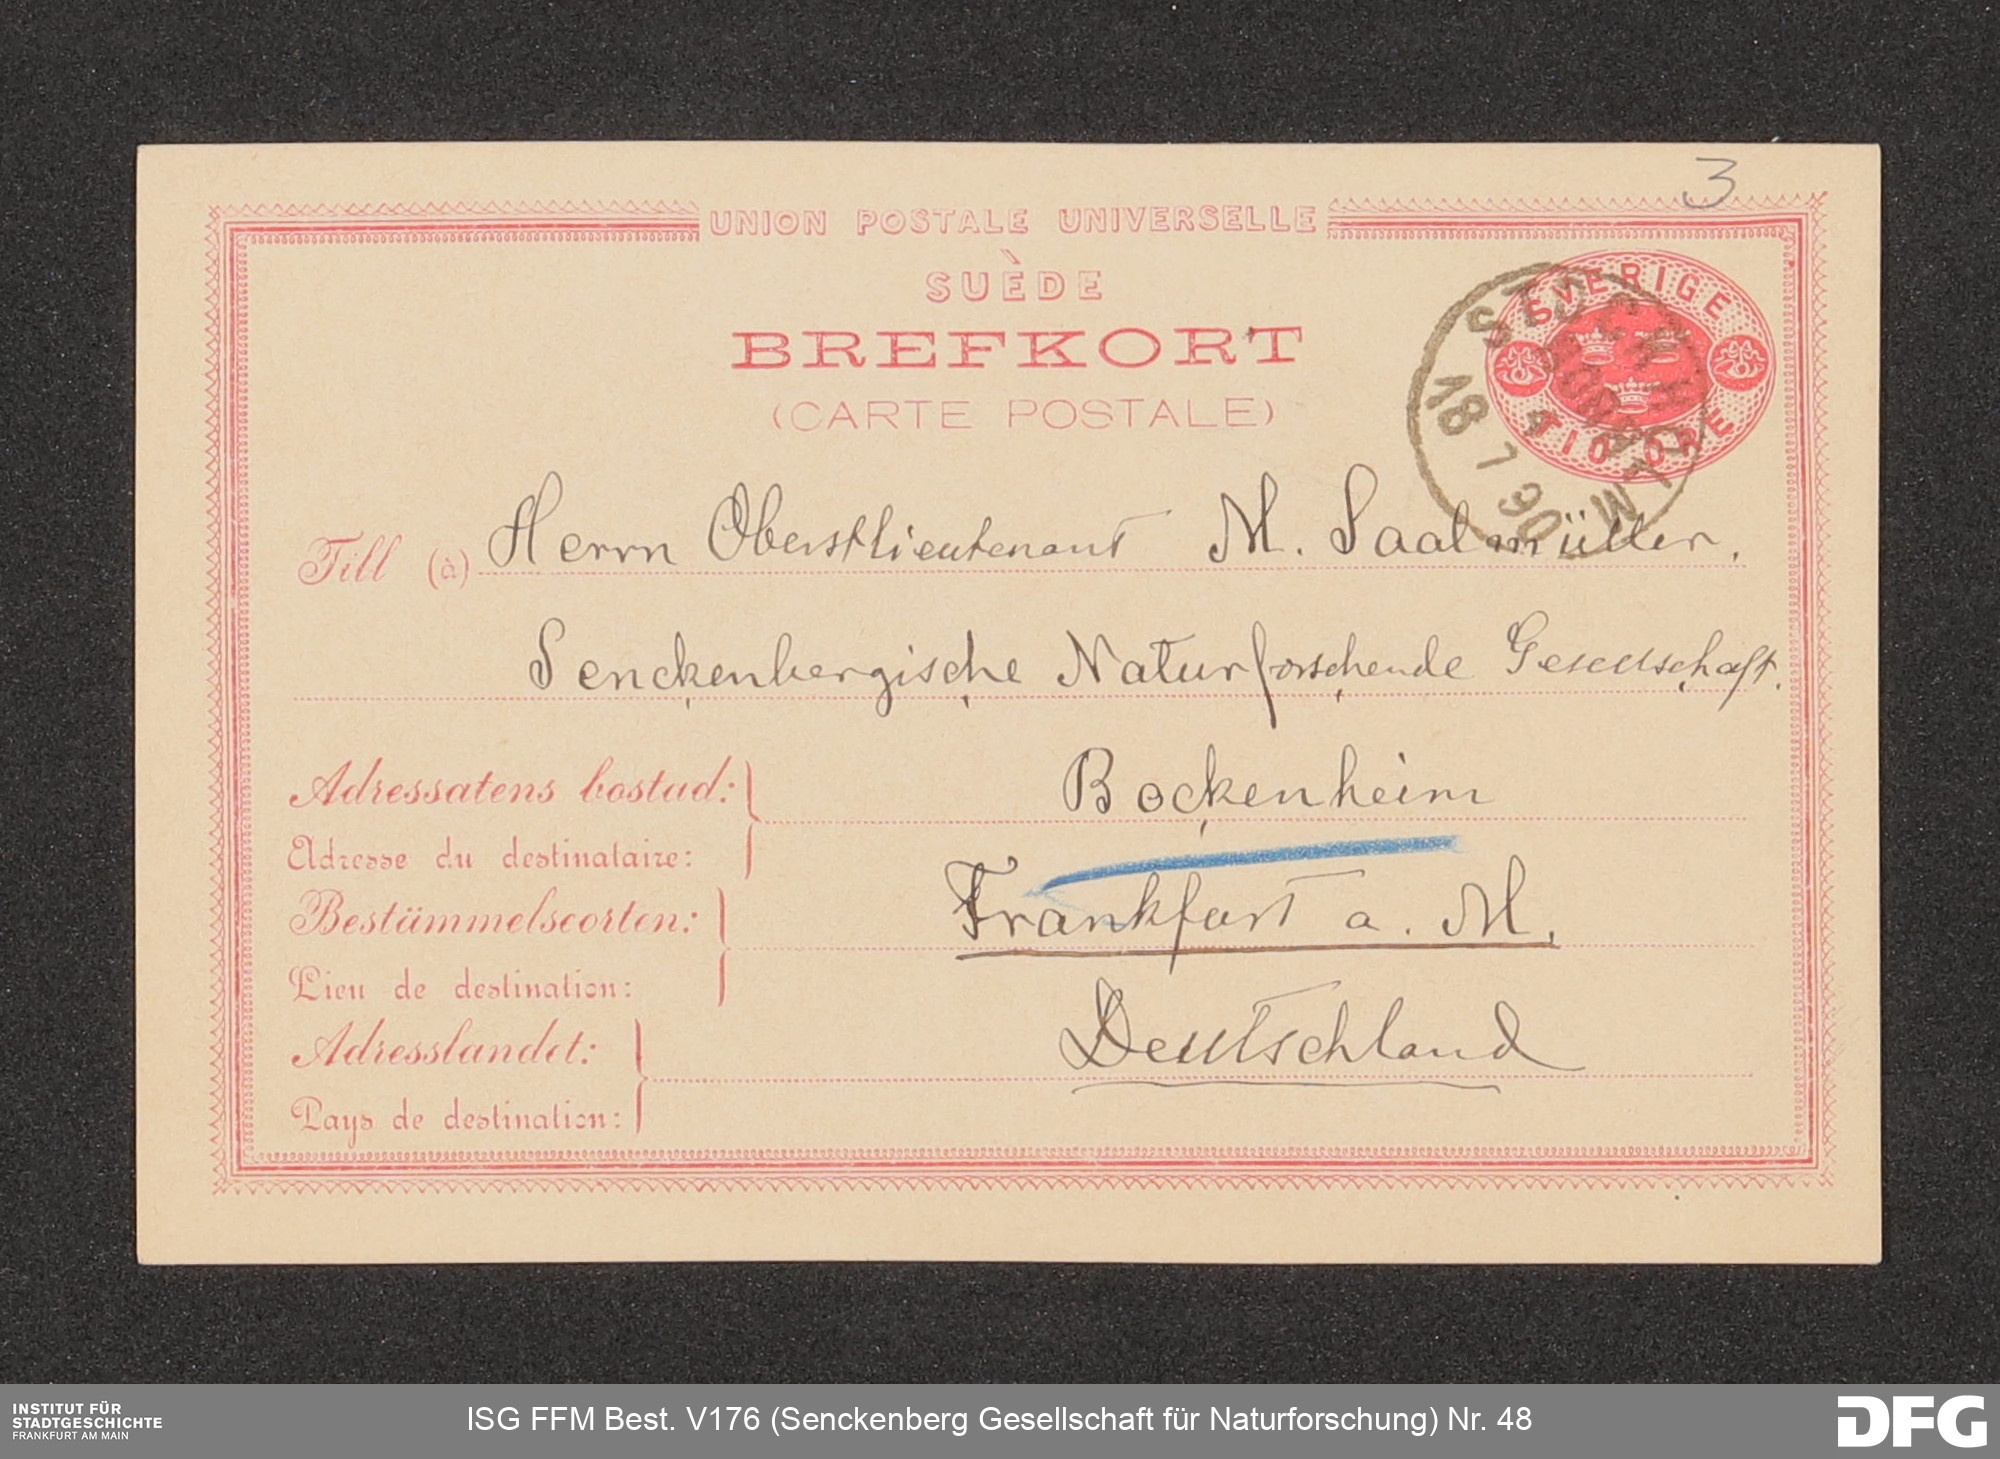 3
UNION POSTALE UNIVERSELLE
SUÈDE
BREFKORT
(CARTE POSTALE)
SVERIGE
TIO ÖRE
STOCKHOLM
18 7 90
Till (à) Herrn Oberstlieutenant M. Saalmüller,
Senckenbergische Naturforschende Gesellschaft.
Adressatens bostad: Bockenheim
Adresse du destinataire:
Bestämmelseorten: Frankfurt a. M.
Lieu de destination:
Adresslandet: Deutschland
Pays de destination:
INSTITUT FÜR
STADTGESCHICHTE
FRANKFURT AM MAIN
ISG FFM Best. V176 (Senckenberg Gesellschaft für Naturforschung) Nr. 48
DFG